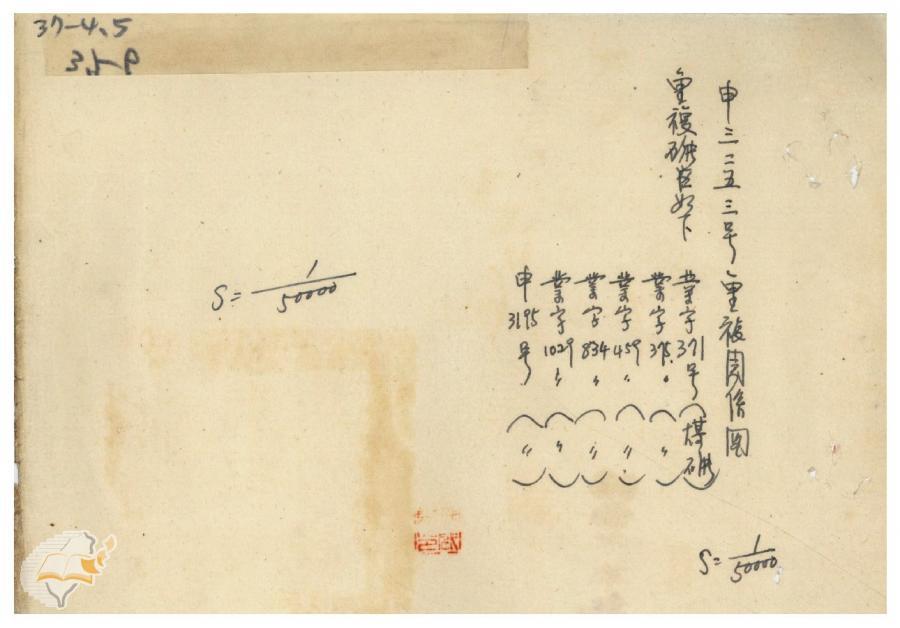 37-4、5
35-9
申三二五三号重複関係図
重複砿区如下
業字371号（煤砿）
業字375〃（〃）
業字459〃（〃）
業字834〃（〃）
業字1029〃（〃）
申3195号（〃）
S=1/50000
S=1/50000